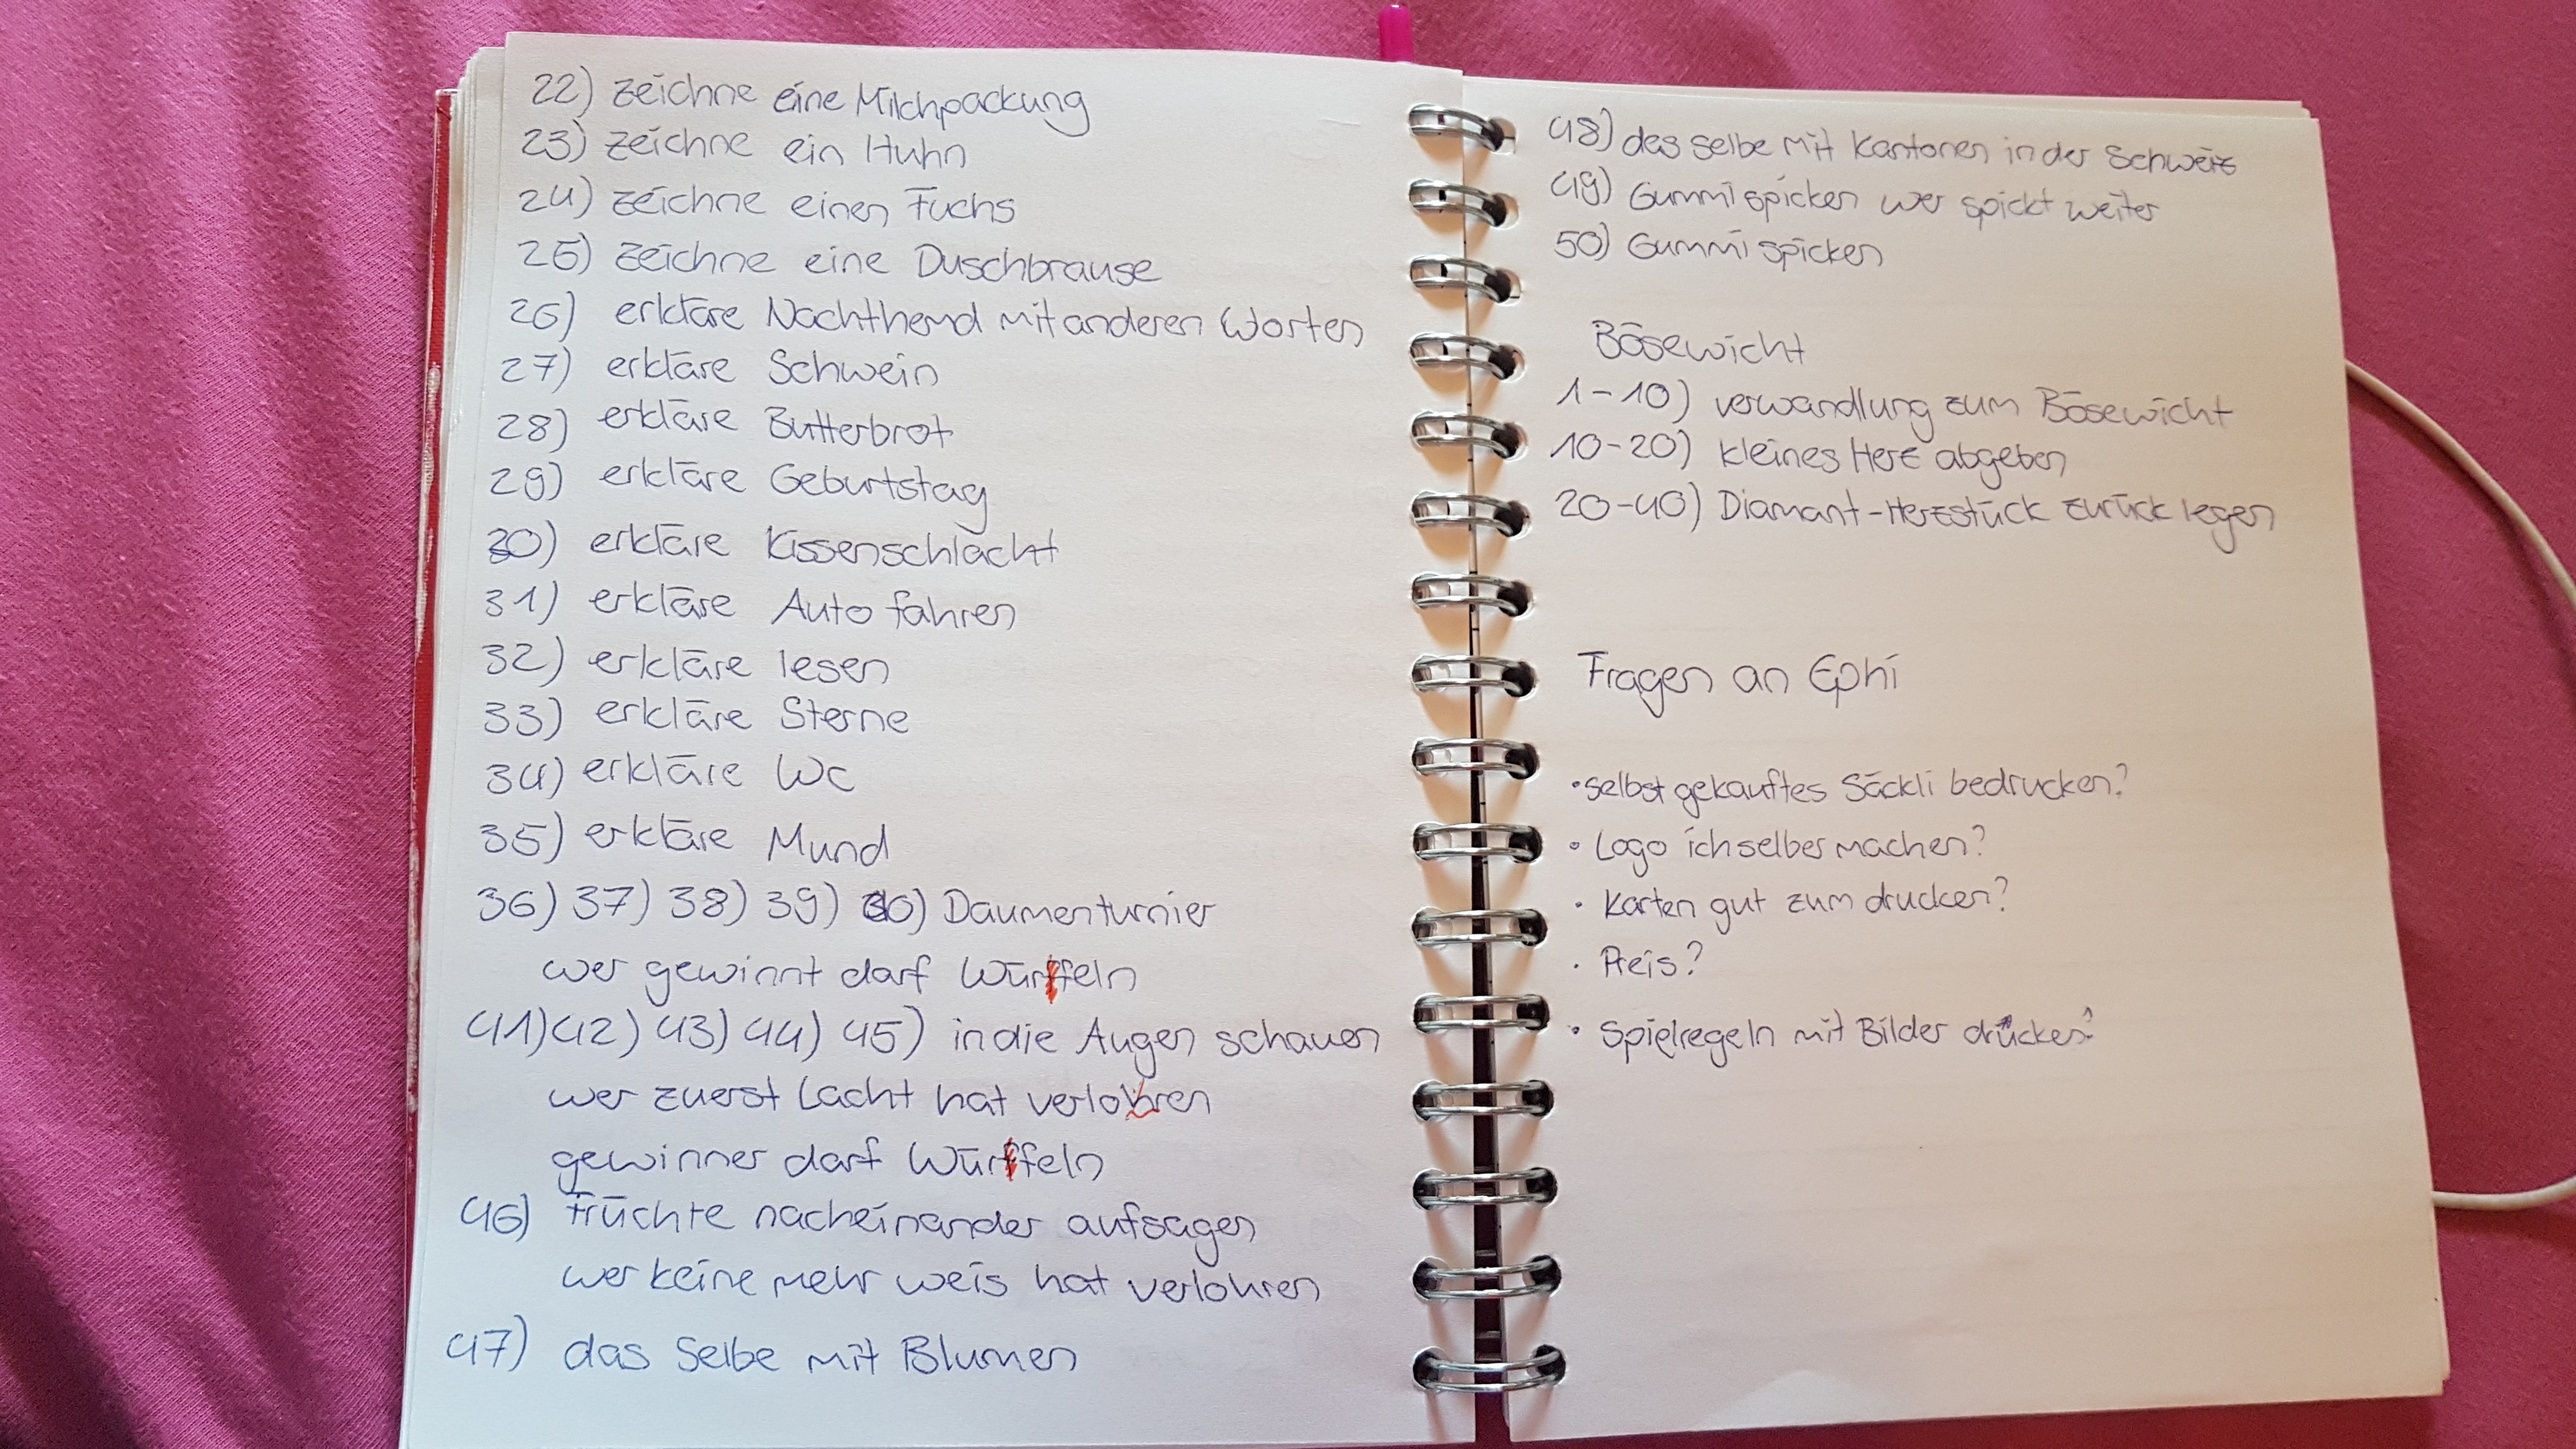 22) zeichne eine Milchpackung
23) zeichne ein Huhn
24) zeichne einen Fuchs
25) zeichne eine Duschbrause
26) erkläre Nachthemd mit anderen Worten
27) erkläre Schwein
28) erkläre Butterbrot
29) erkläre Geburtstag
30) erkläre Kissenschlacht
31) erkläre Auto fahren
32) erkläre lesen
33) erkläre Sterne
34) erkläre WC
35) erkläre Mund
36) 37) 38) 39) 40) Daumenturnier
wer gewinnt darf Würffeln
41) 42) 43) 44) 45) in die Augen schauen
wer zuerst lacht hat verlohren
gewinner darf Würffeln
46) Früchte nacheinander aufsagen
wer keine mehr weis hat verlohren
47) das selbe mit Blumen
48) das selbe mit kantonen in der Schweiz
49) Gummi spicken wer spickt weiter
50) Gummi spicken
Bösewicht
1-10) verwandlung zum Bösewicht
10-20) kleines Herz abgeben
20-40) Diamant-Herzstück zurück legen
Fragen an Ephi
• selbst gekauftes Säckli bedrucken?
• Logo ich selber machen?
• Karten gut zum drucken?
• Preis?
• Spielregeln mit Bilder drucken?